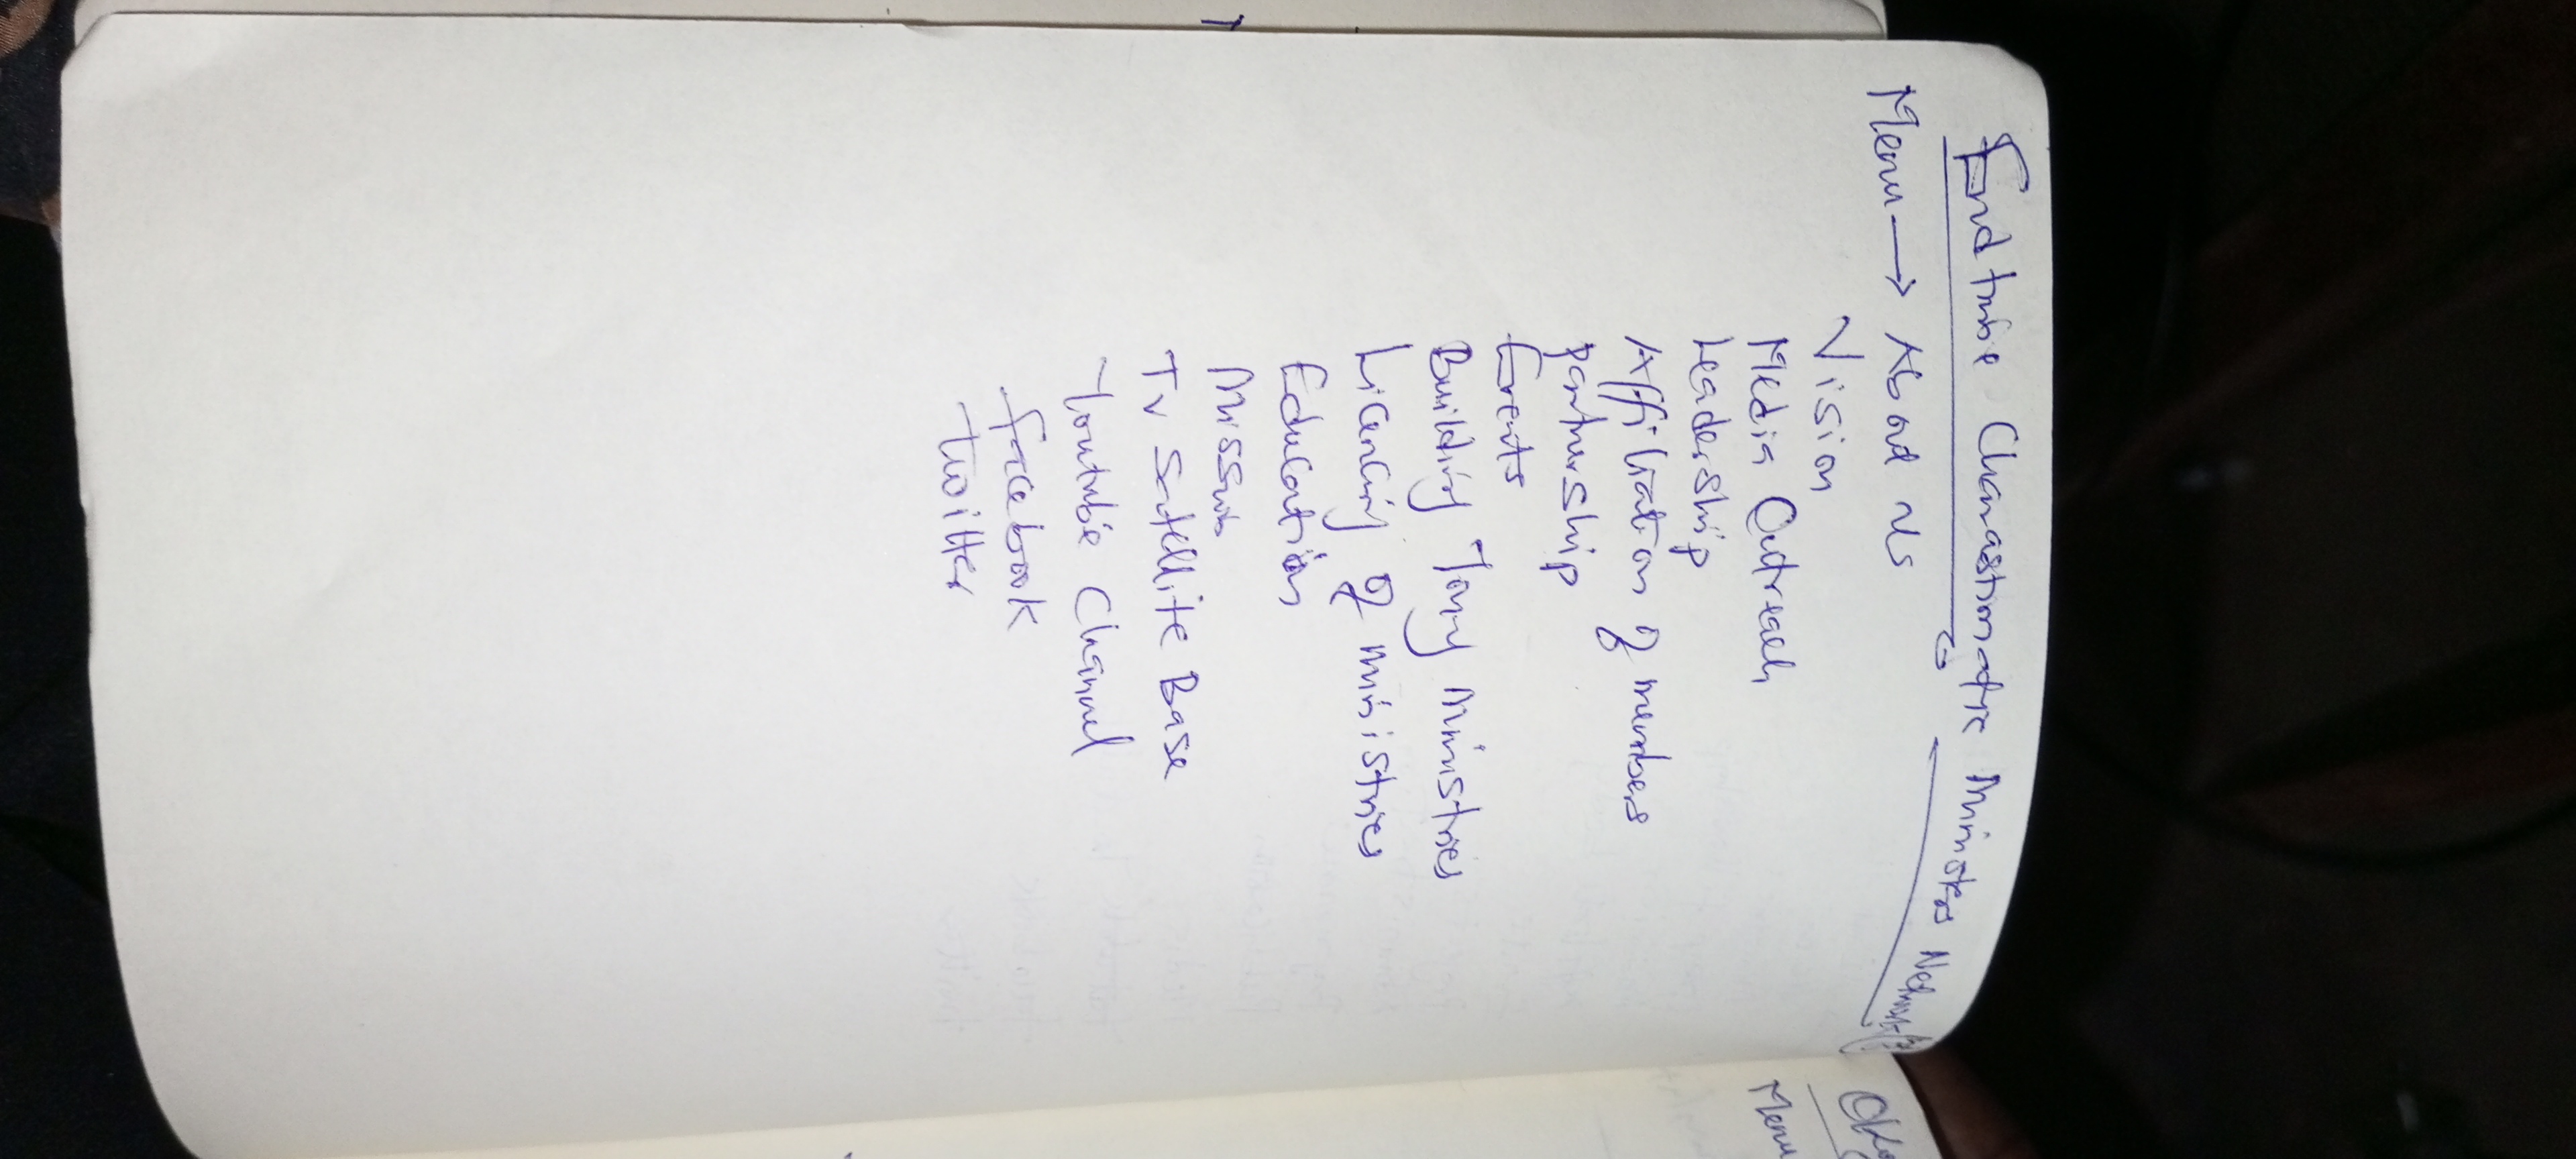 Endtime Charastmatic Ministers Network
Menu → About us
Vision
Media Outreach
Leadership
Affiliation of members
partnership
Events
Building Young Ministries
Licencing of ministries
Education
Missions
Tv Satellite Base
Youtube Channel
facebook
Twitter
Menu